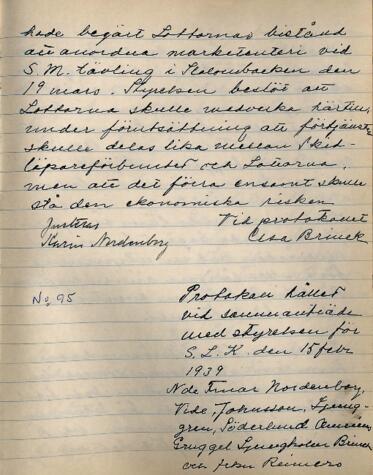 hade begärt Lottornas bistånd
att anordna marketenteri vid
S.M. tävling i Kolombacken den
19 mars. Styrelsen beslöt att
Lottorna skulle medverka härtill,
under förutsättning att förtjänsten
skulle delas lika mellan Skid-
löpareförbundet och Lottorna,
men att det förra ensamt skulle
stå den ekonomiska risken
Justeras Vid protokollet
Karin Nordenborg Elsa Brinck
No, 95
Protokoll hållet
vid sammanträde
med styrelsen för
S.L.K. den 15 febr
1939
Nordenborg,
Johnsson, Ljung-
gren, Söderlund
Ljungholm Brinck
och fröken Reimers